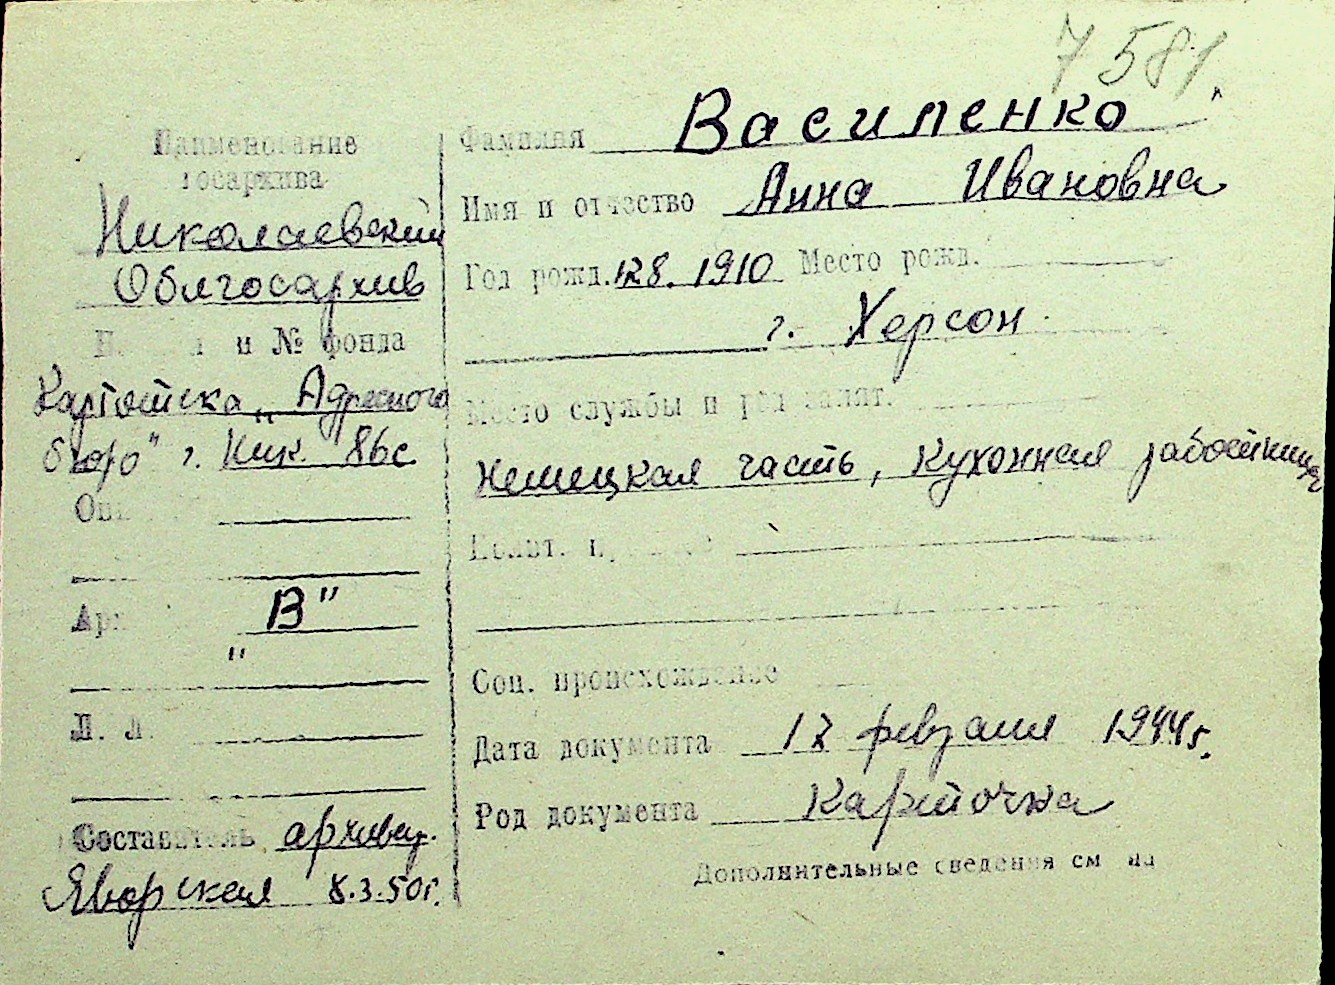 7581.
Наименование
госархива
Николаевский
Облгосархив
и № фонда
Картотека „Адресного
бюро" г. Ник. 86с
"В"
Составитель архивар.
Яворская 8.3.50г.
Фамилия Василенко
Имя и отчество Анна Ивановна
Год рожд. 12 8. 1910 Место рожд.
г. Херсон
Место службы и род занят.
Немецкая часть, кухонная работница
Соц. происхождение
Дата документа 18 февраля 1944г.
Род документа Карточка
Дополнительные сведения см на